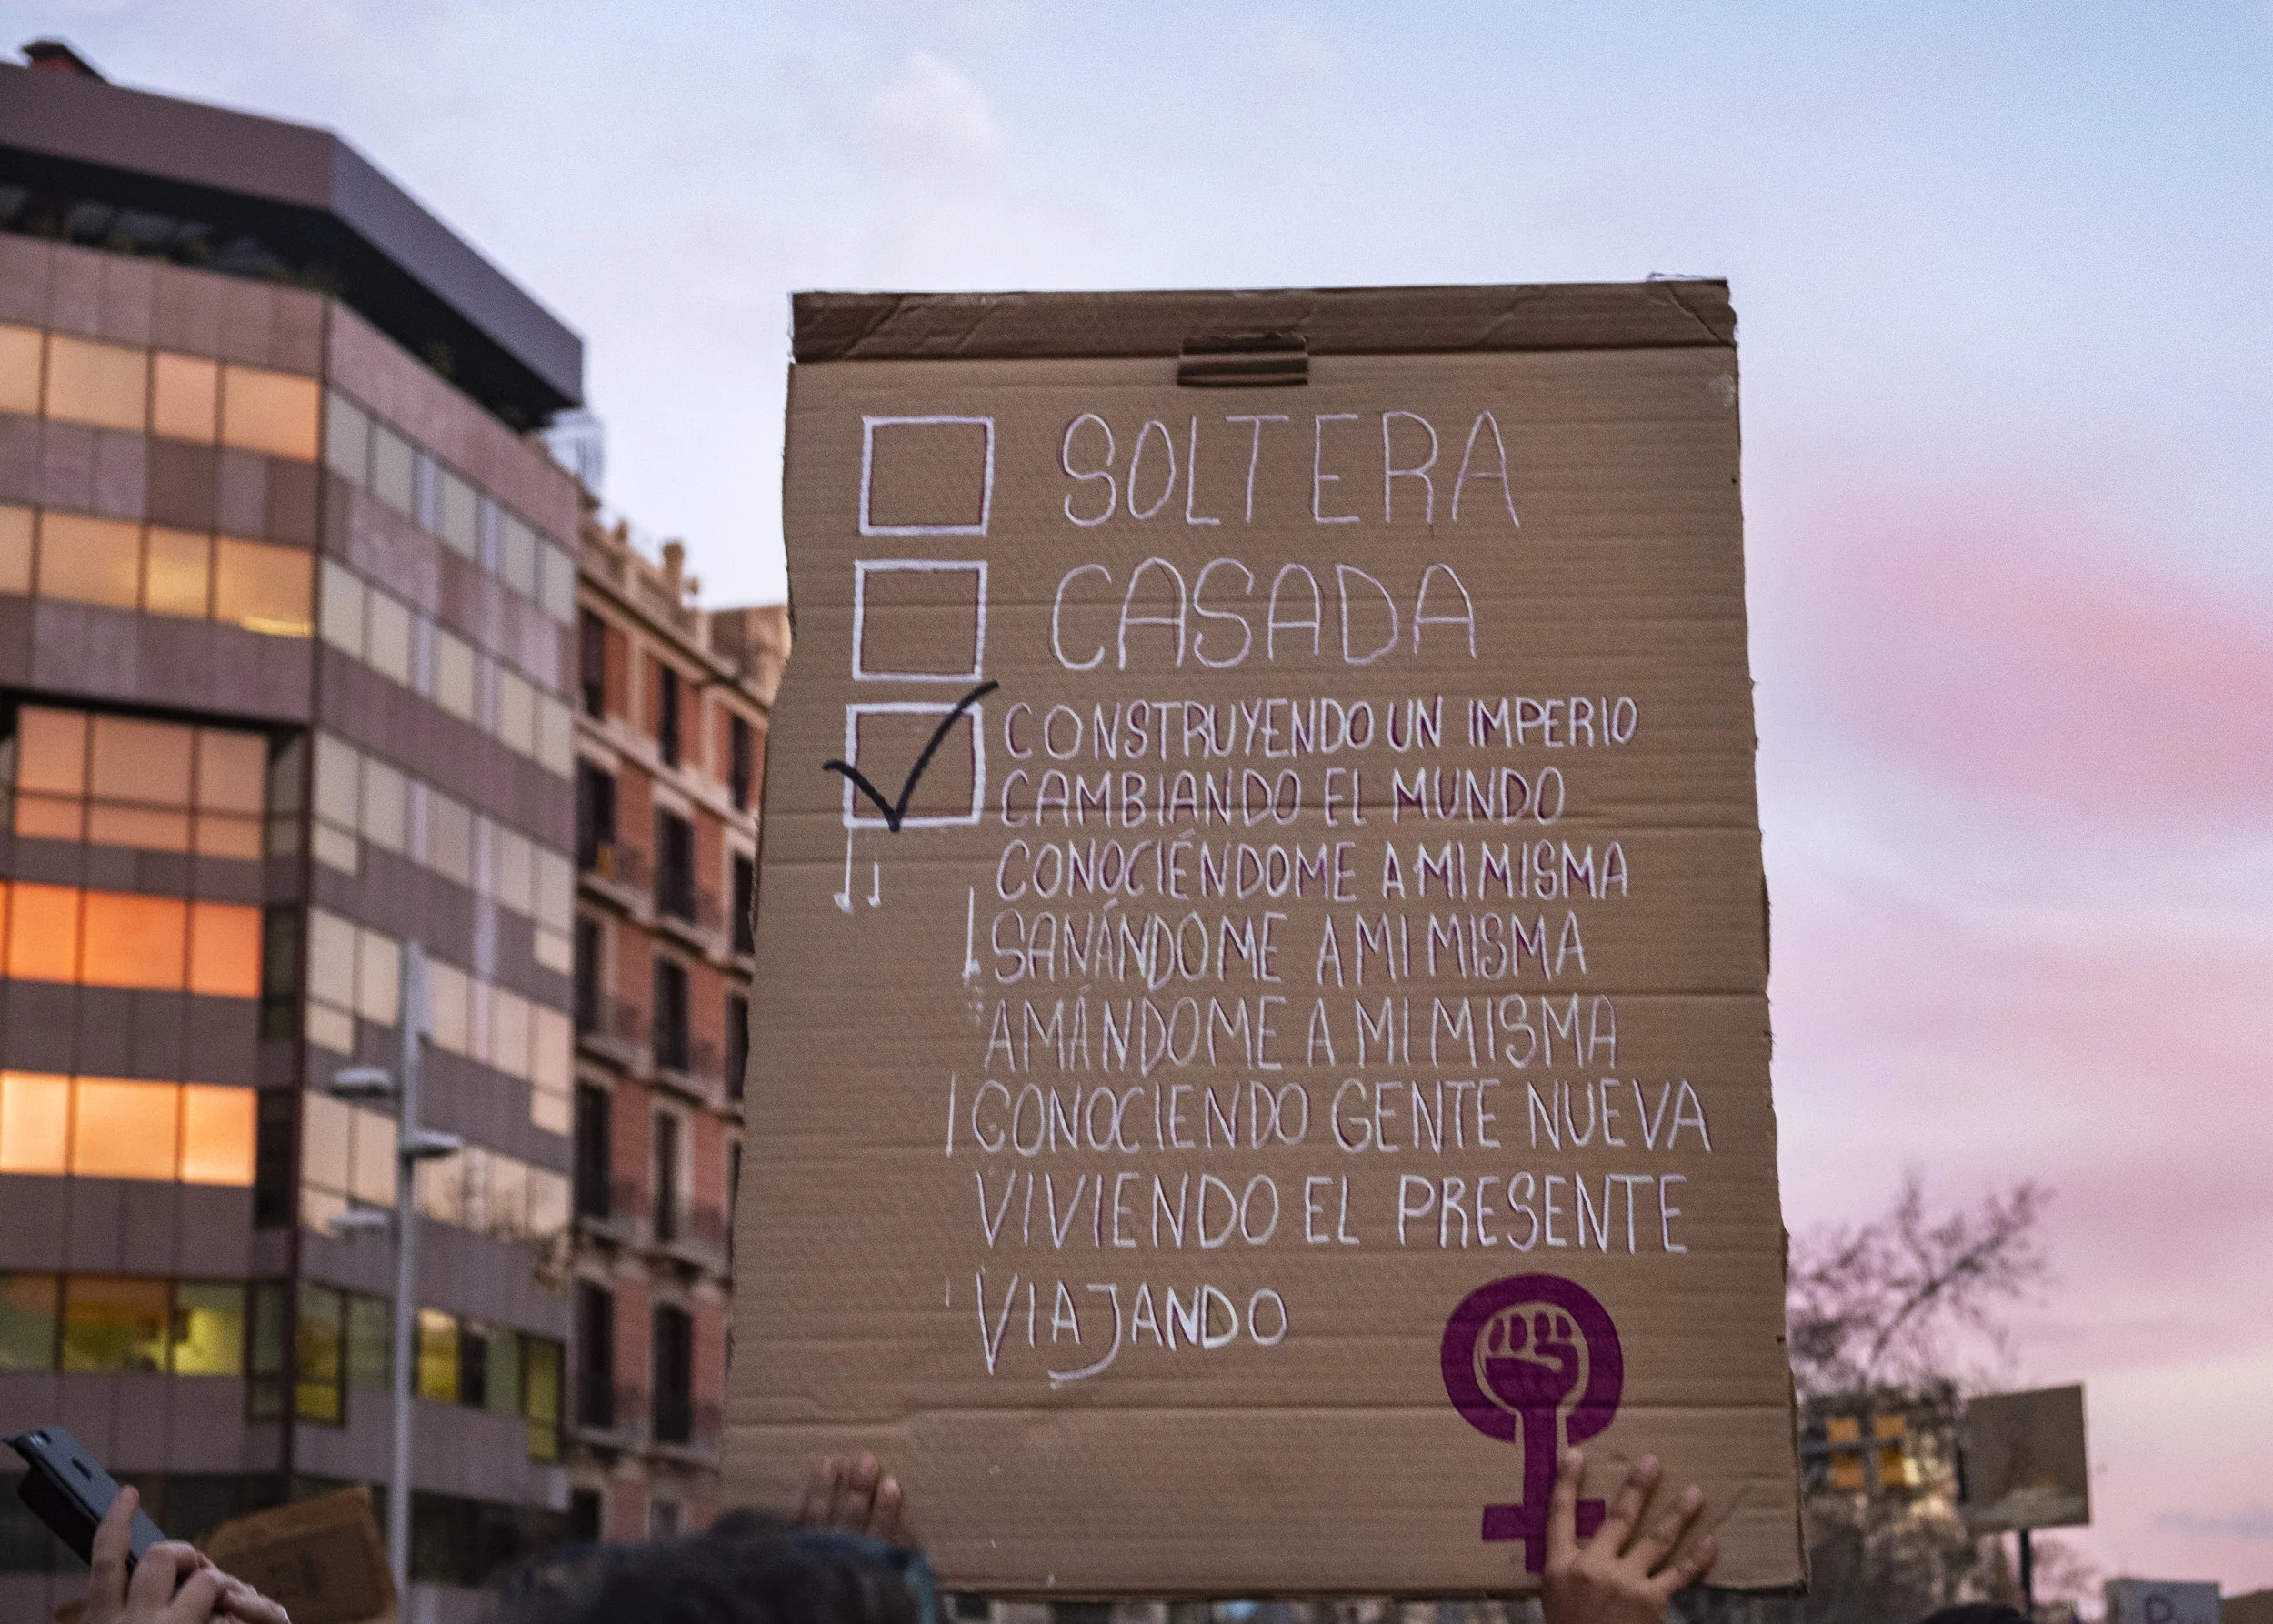 SOLTERA
CASADA
CONSTRUYENDO UN IMPERIO
CAMBIANDO EL MUNDO
CONOCIÉNDOME A MI MISMA
SANÁNDOME A MI MISMA
AMÁNDOME A MI MISMA
CONOCIENDO GENTE NUEVA
VIVIENDO EL PRESENTE
VIAJANDO